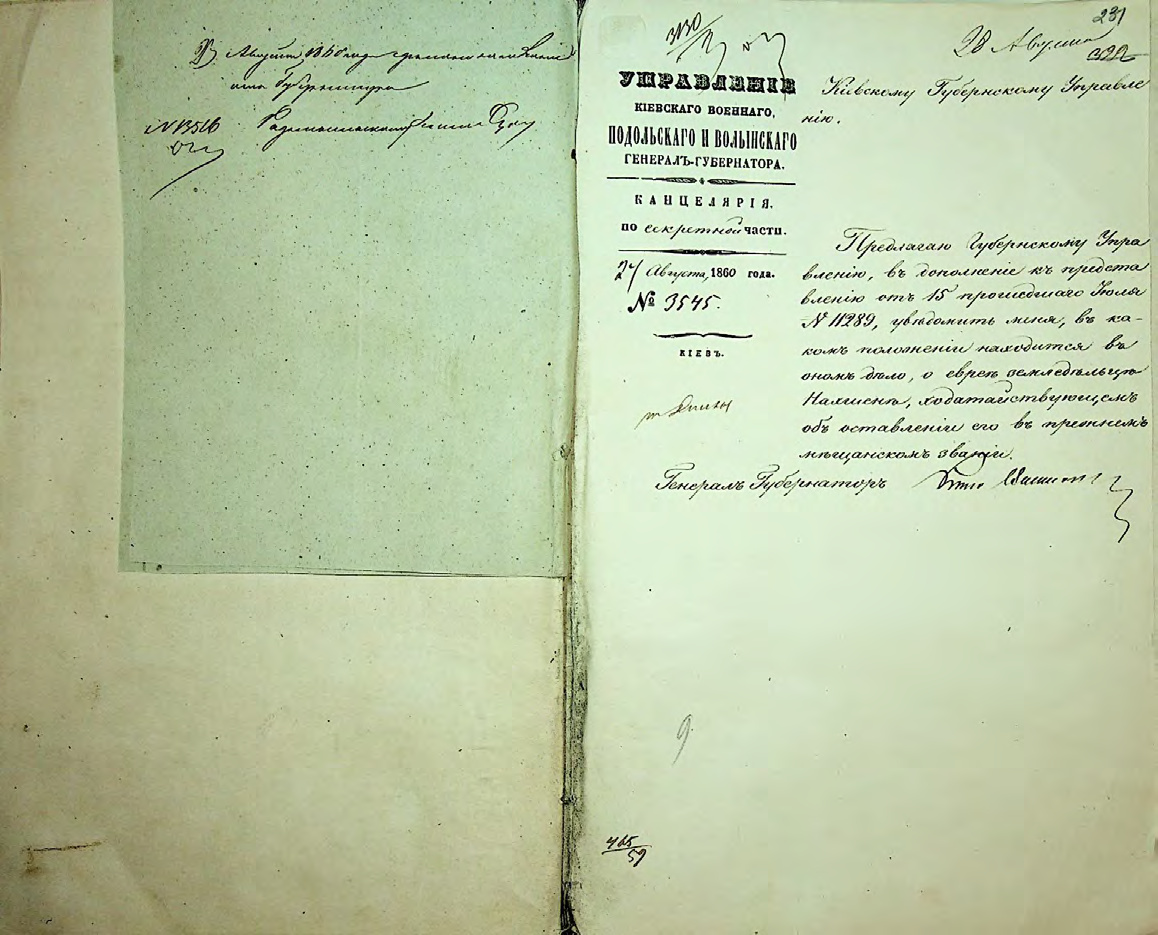 Августа 1860 года
Губернатора
№ 13516
Радомысльскому Суду
231
322
28 Августа
УПРАВЛЕНІЕ
КІЕВСКАГО ВОЕННАГО,
ПОДОЛЬСКАГО И ВОЛЫНСКАГО
ГЕНЕРАЛЪ-ГУБЕРНАТОРА.
КАНЦЕЛЯРІЯ.
по секретной части.
27 Августа, 1860 года.
№ 3545.
КІЕВЪ.
Кіевскому Губернскому Управле
нію.
Предлагаю Губернскому Упра
вленію, въ дополненіе къ предста
вленію отъ 15 прошедшаго Іюля
№ 11289, увѣдомить меня, въ ка-
комъ положеніи находится въ
ономъ дѣло, о евреѣ земледѣльцѣ
ходатайствующемъ
объ оставленіи его въ прежнемъ
мѣщанскомъ званіи.
Генералъ Губернаторъ
465
59